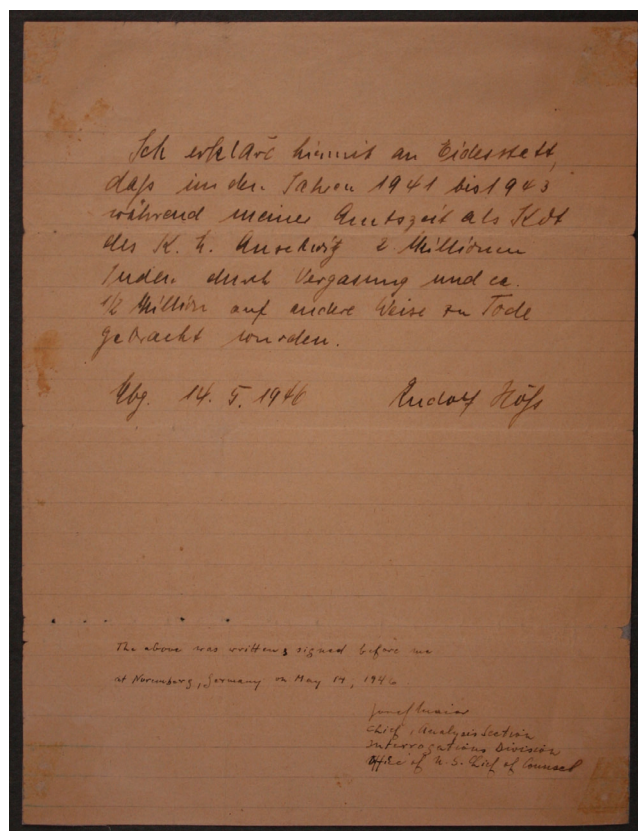 Ich erkläre hiermit an Eidesstatt,
daß in den Jahren 1941 bis 1943
während meiner Amtszeit als Kdt
des K. L. Auschwitz 2 Millionen
Juden durch Vergasung und ca.
1/2 Million auf andere Weise zu Tode
gebracht wurden.
Nbg. 14. 5. 1946 Rudolf Höß
The above was written & signed before me
at Nuremberg, Germany on May 14, 1946
Josef Maier
Chief, Analysis Section
Interrogations Division
Office of U.S. Chief of Counsel